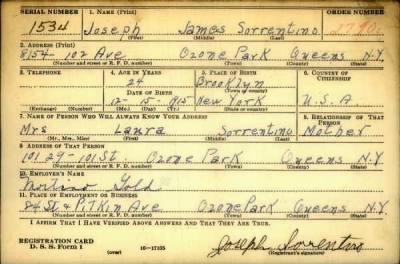 SERIAL NUMBER 1. NAME (Print) ORDER NUMBER
1534 Joseph James Sorrentino
(First) (Middle) (Last)
2. ADDRESS (Print)
8154-102 Ave Ozone Park Queens N.Y.
(Number and street or R. F. D. number) (Town) (County) (State)
3. TELEPHONE 4. AGE IN YEARS 5. PLACE OF BIRTH 6. COUNTRY OF CITIZENSHIP
24 Brooklyn
DATE OF BIRTH (Town or county)
12-15-1915 New York U.S.A
(Exchange) (Number) (Mo.) (Day) (Yr.) (State or country)
7. NAME OF PERSON WHO WILL ALWAYS KNOW YOUR ADDRESS 8. RELATIONSHIP OF THAT PERSON
Mrs Laura Sorrentino Mother
(Mr., Mrs., Miss) (First) (Middle) (Last)
9. ADDRESS OF THAT PERSON
101-29-101 St Ozone Park Queens N.Y
(Number and street or R. F. D. number) (Town) (County) (State)
10. EMPLOYER'S NAME
Gold
11. PLACE OF EMPLOYMENT OR BUSINESS
84 St & Pitkin Ave Ozone Park Queens N.Y.
(Number and street or R. F. D. number) (Town) (County) (State)
I AFFIRM THAT I HAVE VERIFIED ABOVE ANSWERS AND THAT THEY ARE TRUE.
REGISTRATION CARD
D. S. S. FORM 1 (over) 16-17105 Joseph Sorrentino
(Registrant's signature)